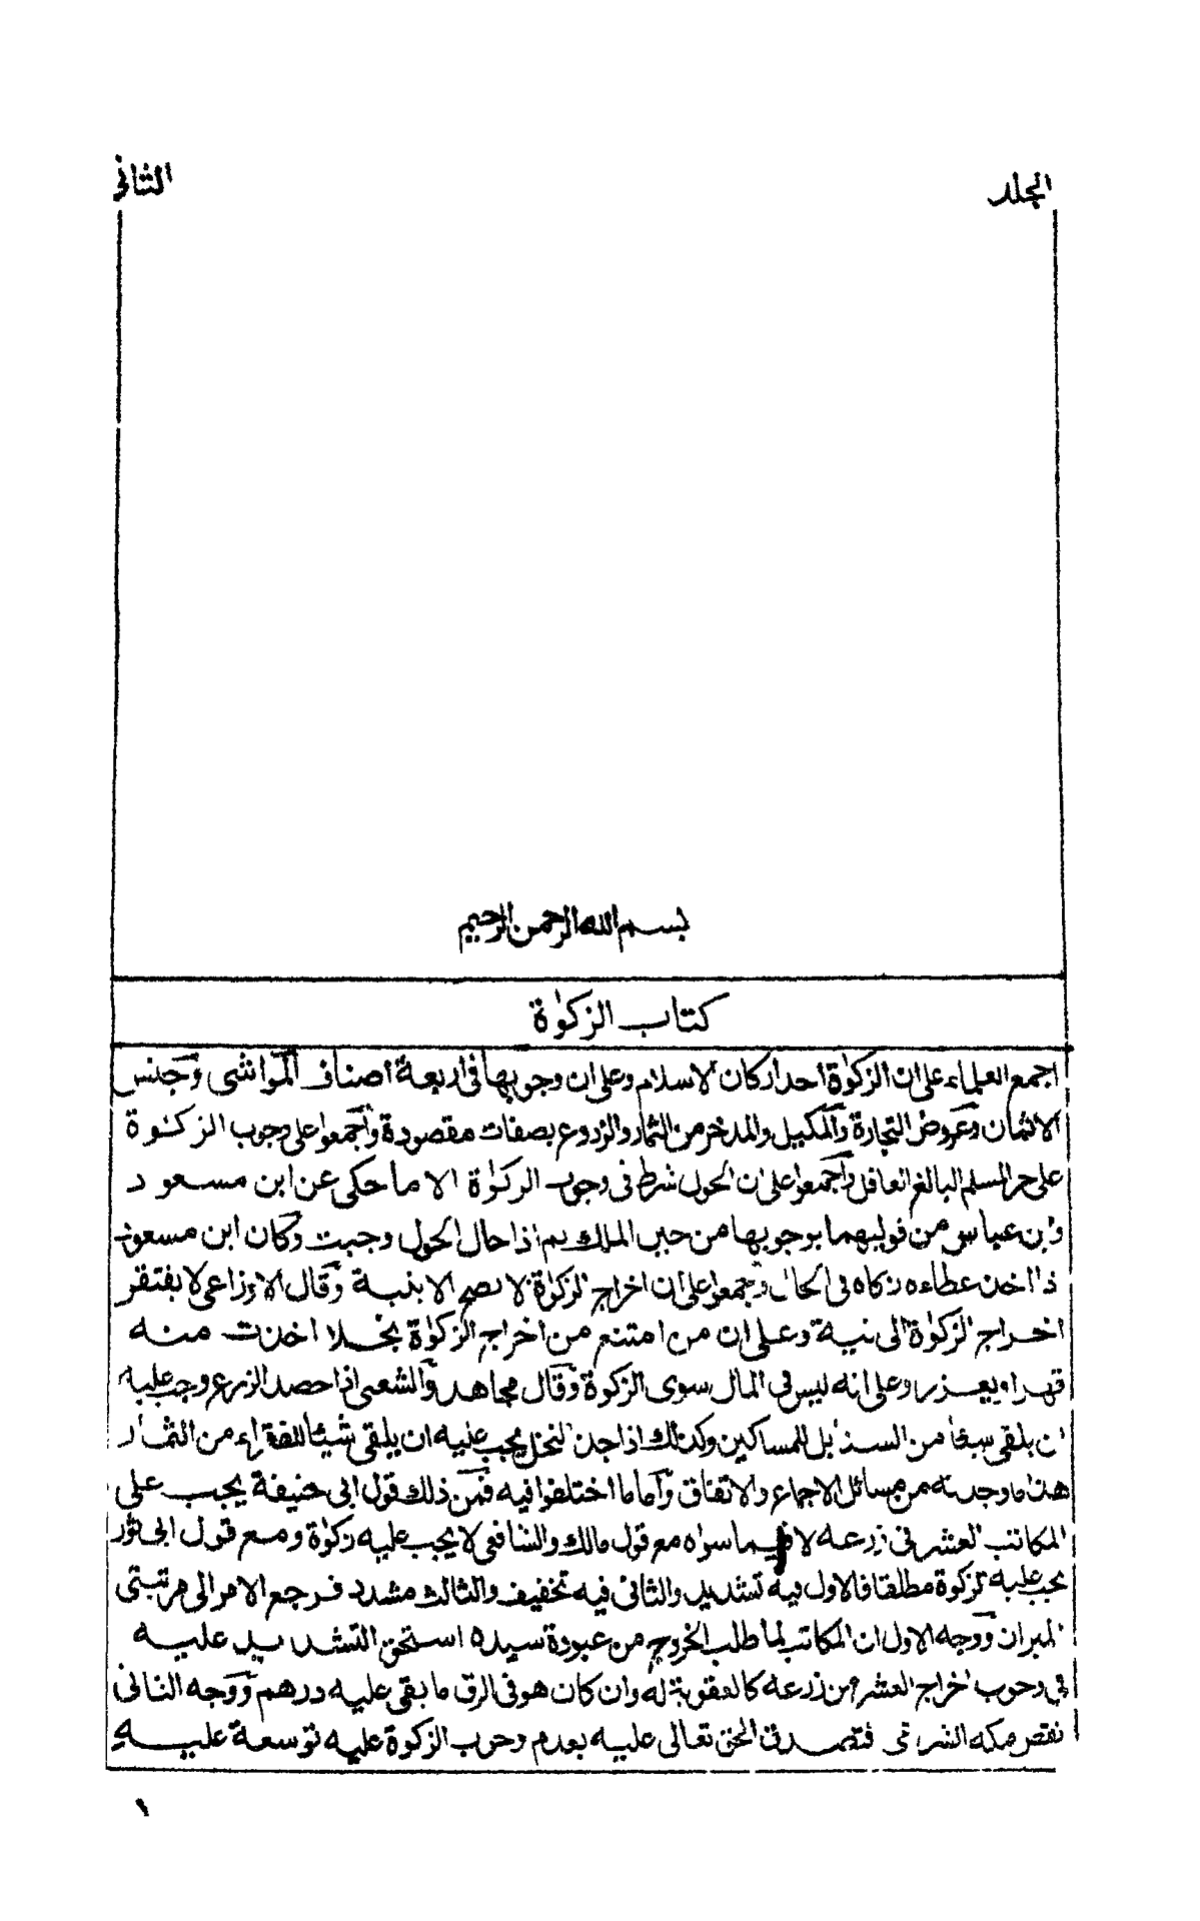 الجلد الثانى
بسم الله الرحمن الرحيم
كتاب الزكوٰة
اجمع العلماء على ان الزكوٰة احد اركان الاسلام وعلى ان وجوبها فى اربعة اصناف المواشى وجنس
الاثمان وعروض التجارة والمكيل والمدخر من الثمار والزروع بصفات مقصودة واجمعوا على وجوب الزكوة
على حر المسلم البالغ العاقل واجمعوا على ان الحول شرط فى وجوب الزكوٰة الا ما حكى عن ابن مسعود
وابن عباس من قوليهما بوجوبها من حين الملك ثم اذا حال الحول وجبت وكان ابن مسعود
اذا اخذ عطاءه زكاه فى الحال واجمعوا على ان اخراج الزكوٰة لا يصح الا بنية وقال الاوزاعى لا يفتقر
اخراج الزكوٰة الى نية وعلى ان من امتنع من اخراج الزكوٰة بخلا اخذت منه
قهرا ويعزر وعلى انه ليس فى المال سوى الزكوة وقال مجاهد والشعبى اذا حصد الزرع وجب عليه
ان يلقى شيئا من السنابل للمساكين وكذلك اذا جذ النخل يجب عليه ان يلقى شيئا للفقراء من الثمار
هذا ما وجدته من مسائل الاجماع والاتفاق واما ما اختلفوا فيه فمن ذلك قول ابى حنيفة يجب على
المكاتب العشر فى زرعه لا فيما سواه مع قول مالك والشافعى لا يجب عليه زكوٰة ومع قول ابى ثور
يجب عليه الزكوة مطلقا فالاول فيه تشديد والثانى فيه تخفيف والثالث مشدد فرجع الامر الى مرتبتى
الميزان ووجه الاول ان المكاتب لما طلب الخروج من عبودة سيده استحق التشديد عليه
فى وجوب اخراج العشر من زرعه كالعقوبة له وان كان هو فى الرق ما بقى عليه درهم ووجه الثانى
نقص ملكه الشرعى فتصدق الحق تعالى عليه بعدم وجوب الزكوة عليه توسعة عليه
١